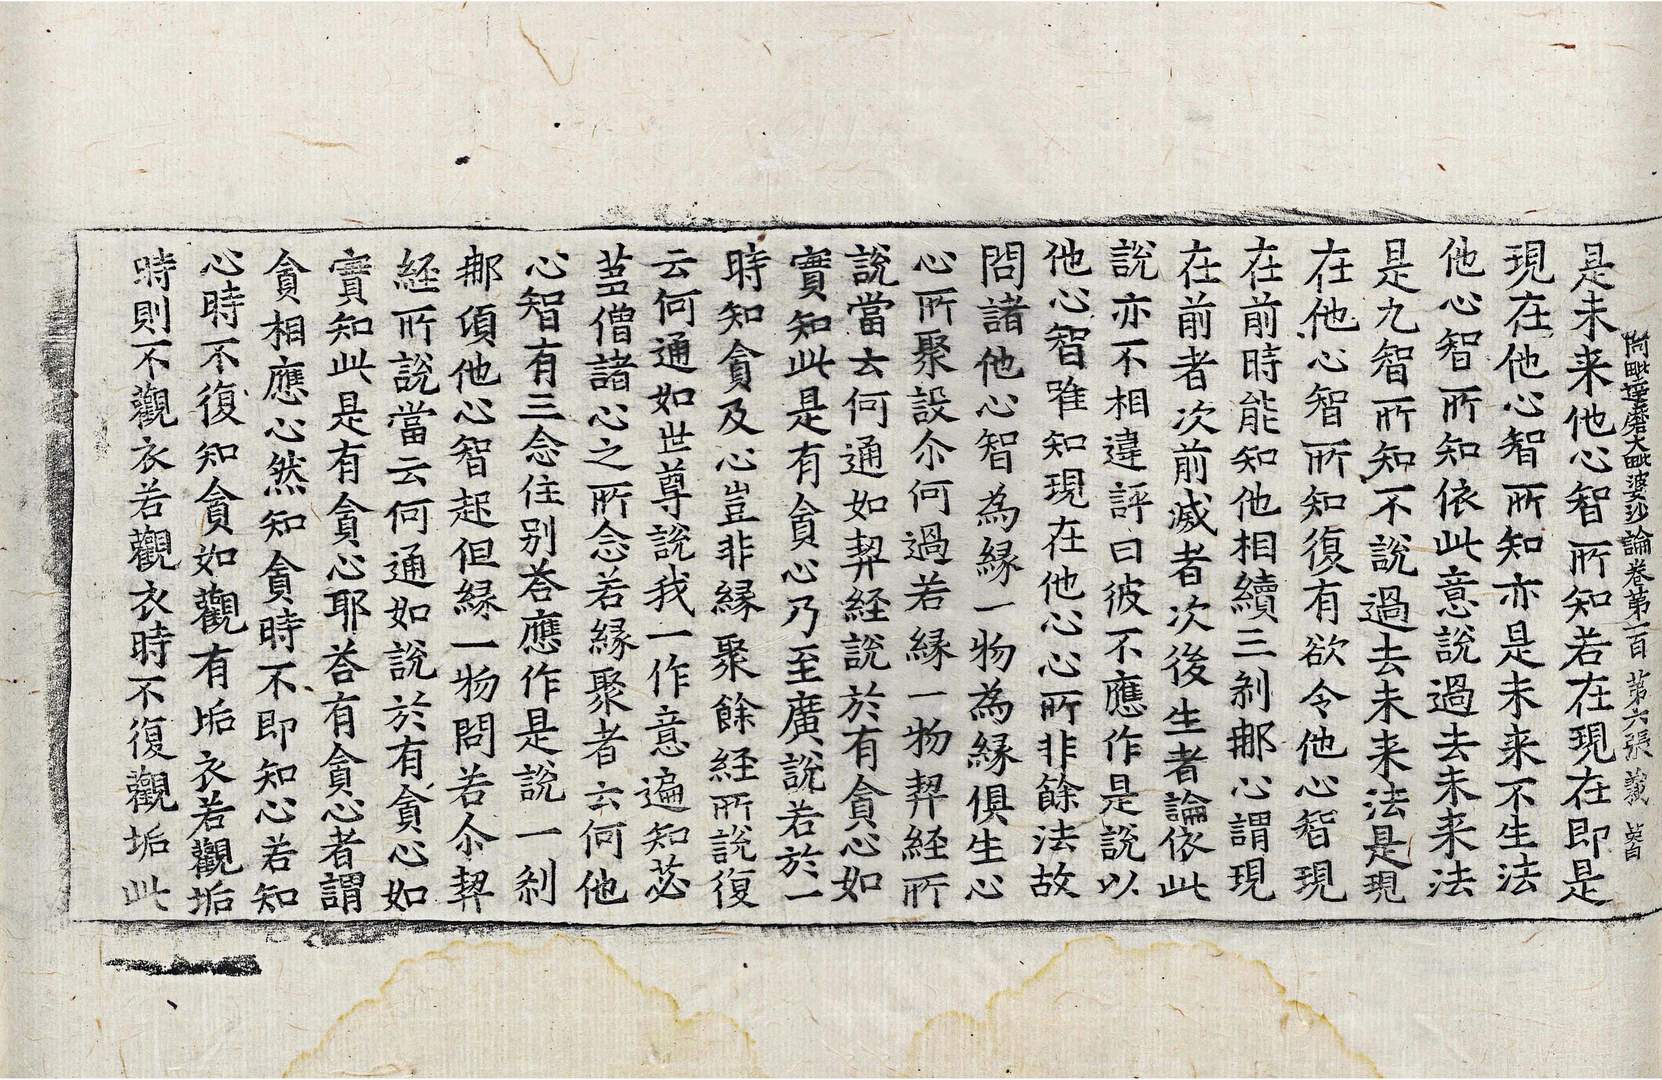 阿毗達磨大毗婆沙論卷第一百 第六張 義
是未来他心智所知若在現在即是
現在他心智所知亦是未来不生法
他心智所知依此意說過去未来法
是九智所知不說過去未来法是現
在他心智所知復有欲令他心智現
在前時能知他相續三剎那心謂現
在前者次前滅者次後生者論依此
說亦不相違評曰彼不應作是說以
他心智唯知現在他心心所非餘法故
問諸他心智為緣一物為緣俱生心
心所聚設尒何過若緣一物契経所
說當云何通如契経說於有貪心如
實知此是有貪心乃至廣說若於一
時知貪及心豈非緣聚餘経所說復
云何通如世尊說我一作意遍知苾
芻僧諸心之所念若緣聚者云何他
心智有三念住别荅應作是說一剎
那頃他心智起但緣一物問若尒契
経所說當云何通如說於有貪心如
實知此是有貪心耶荅有貪心者謂
貪相應心然知貪時不即知心若知
心時不復知貪如觀有垢衣若觀垢
時則不觀衣若觀衣時不復觀垢此